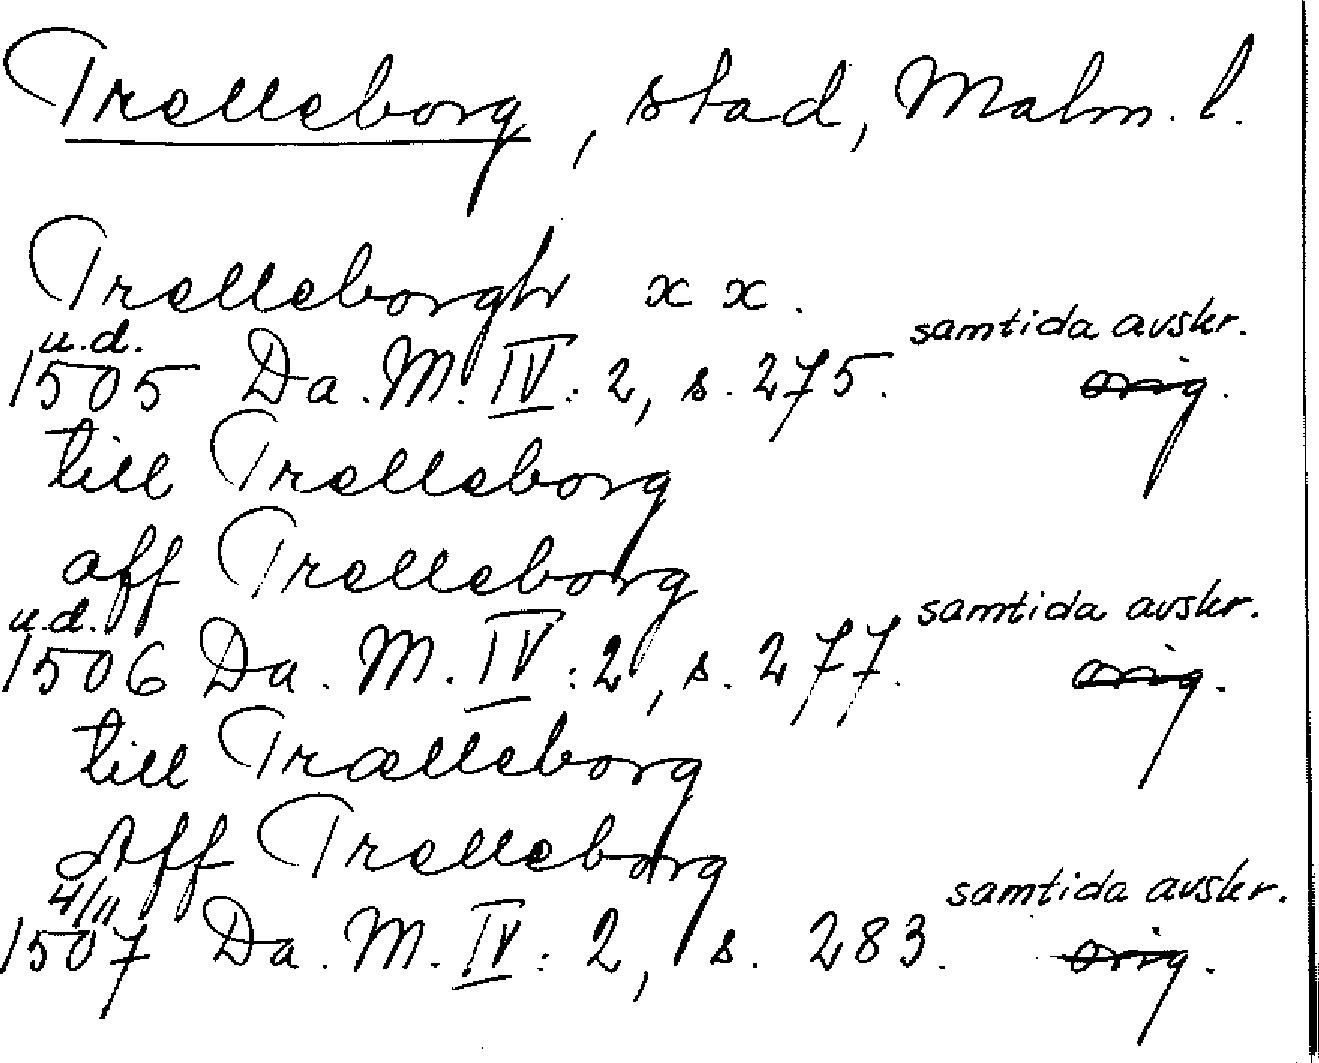 Trelleborg, stad, Malm. l.
Trelleborgh x x.
u.d. samtida avskr.
1505 Da. M. IV: 2, s. 275. orig.
till Trelleborg
aff Trelleborg
u.d. samtida avskr.
1506 Da. M. IV: 2, s. 277. orig.
till Trælleborg
Aff Trelleborg
4/11 samtida avskr.
1507 Da. M. IV: 2, s. 283. orig.